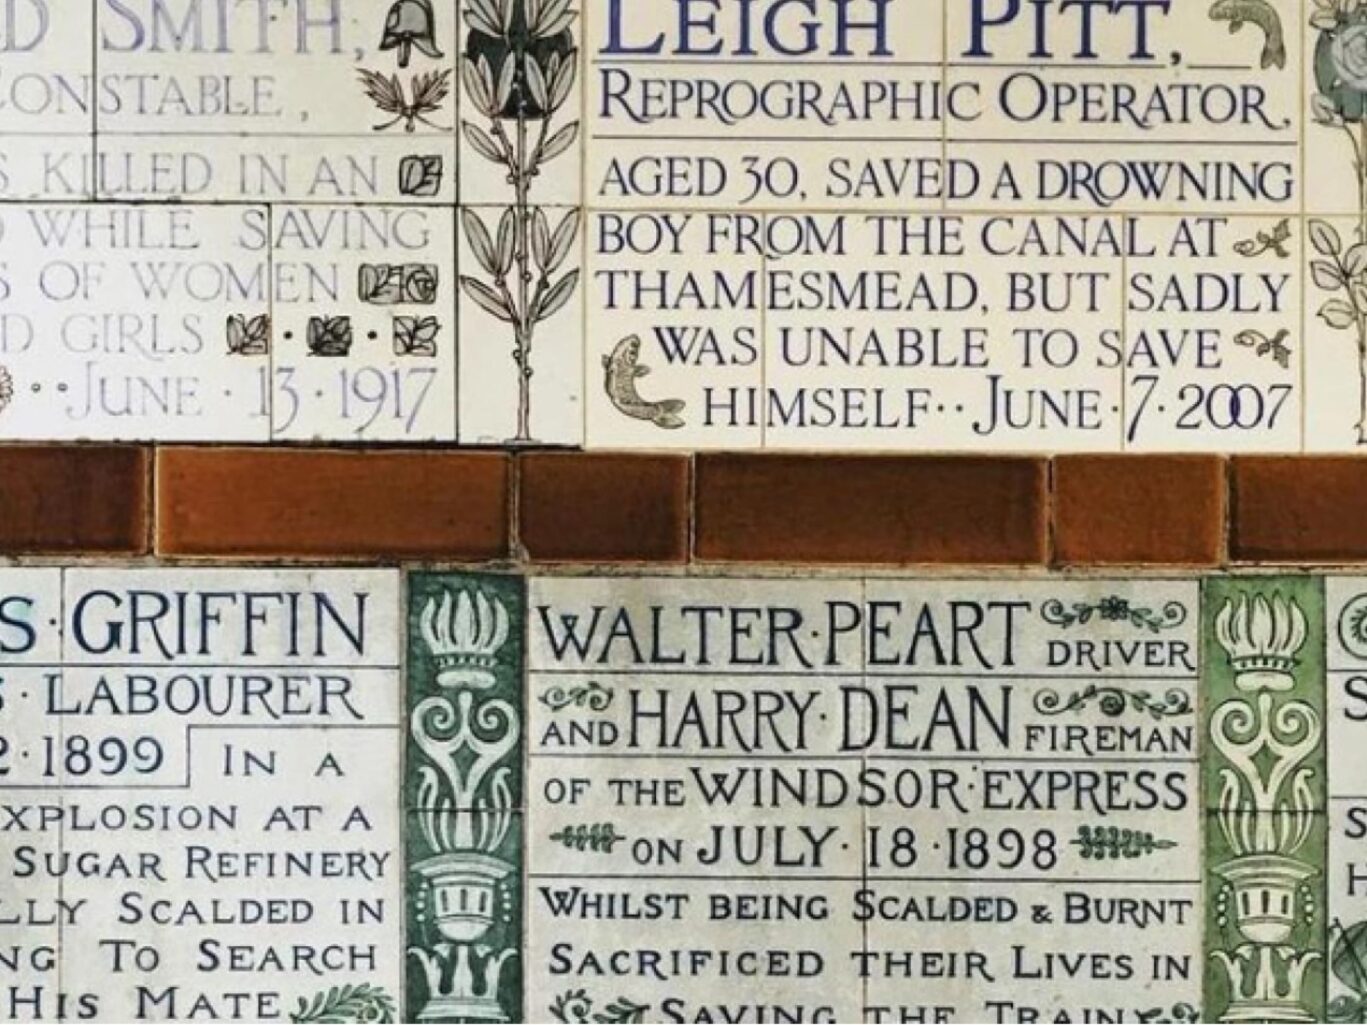 SMITH,
CONSTABLE,
KILLED IN AN
WHILE SAVING
OF WOMEN
GIRLS
JUNE · 13 · 1917
LEIGH PITT,
REPROGRAPHIC OPERATOR,
AGED 30, SAVED A DROWNING
BOY FROM THE CANAL AT
THAMESMEAD, BUT SADLY
WAS UNABLE TO SAVE
HIMSELF·· JUNE·7·2007
S·GRIFFIN
· LABOURER
· 1899 IN A
EXPLOSION AT A
SUGAR REFINERY
SCALDED IN
TO SEARCH
HIS MATE
WALTER·PEART DRIVER
AND HARRY·DEAN FIREMAN
OF THE WINDSOR·EXPRESS
ON JULY·18·1898
WHILST BEING SCALDED & BURNT
SACRIFICED THEIR LIVES IN
SAVING THE TRAIN